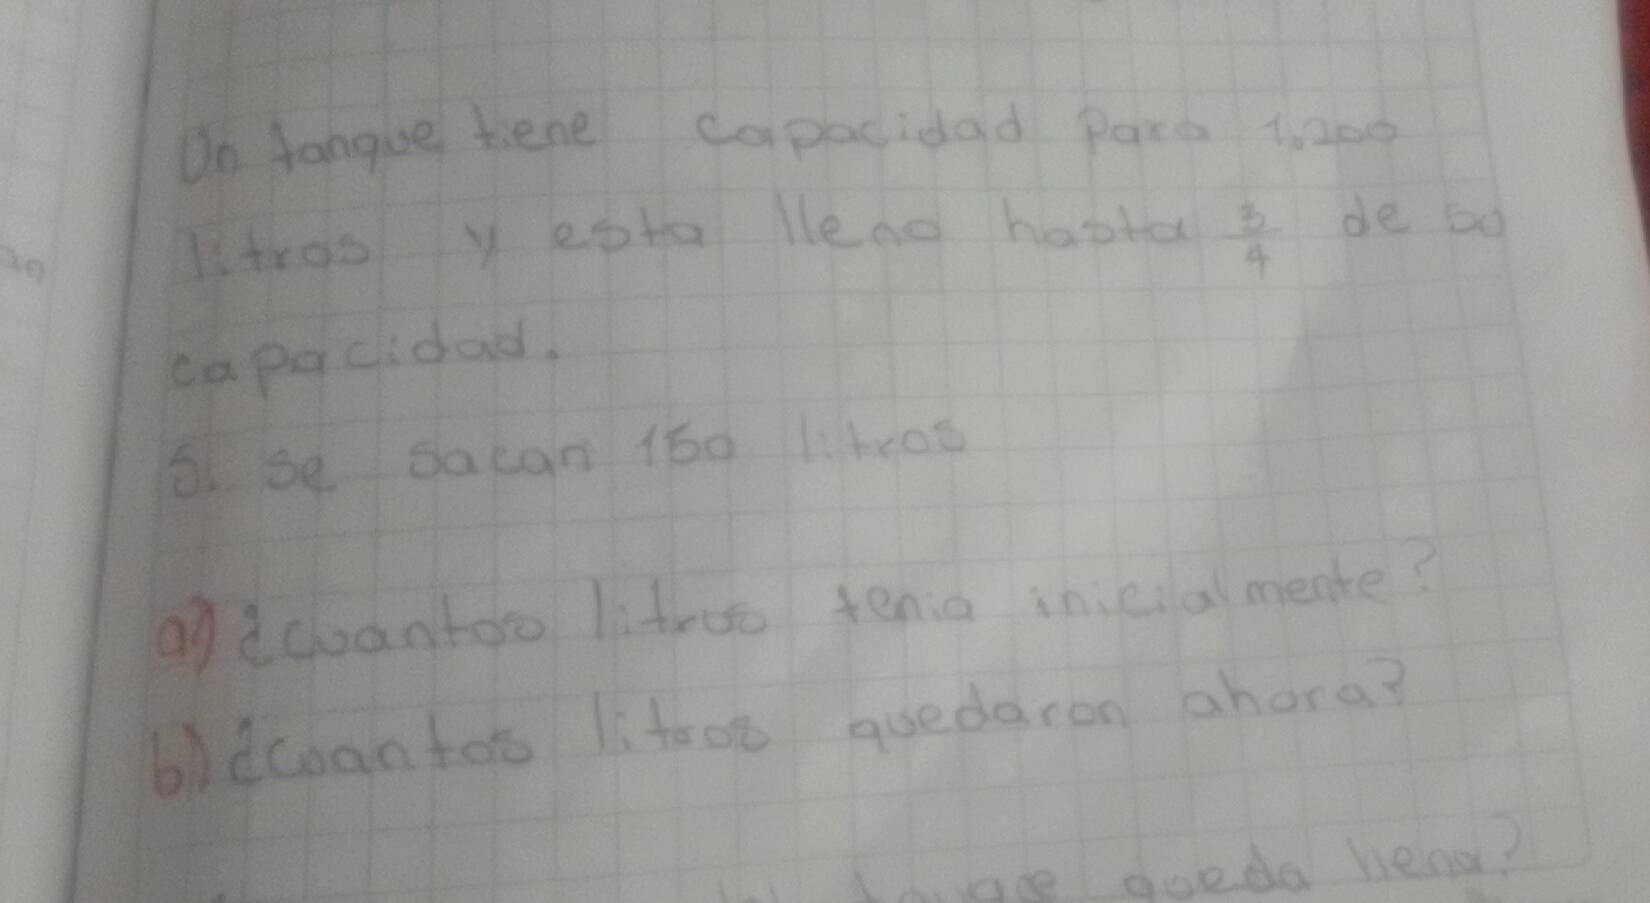 Un tanque tiene capacidad para 1.200
litros y esta lleno hasta 3/4 de su
capacidad.
Si se sacan 150 litros
a) ¿cuantos litros tenia inicialmente?
b) ¿cuantos litros quedaron ahora?
tanque queda lleno?